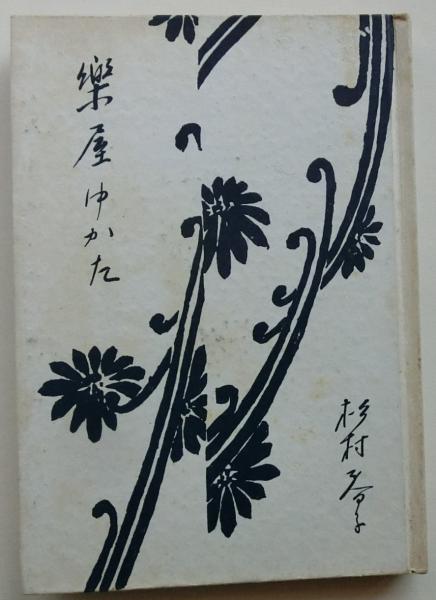 樂屋ゆかた
杉村春子